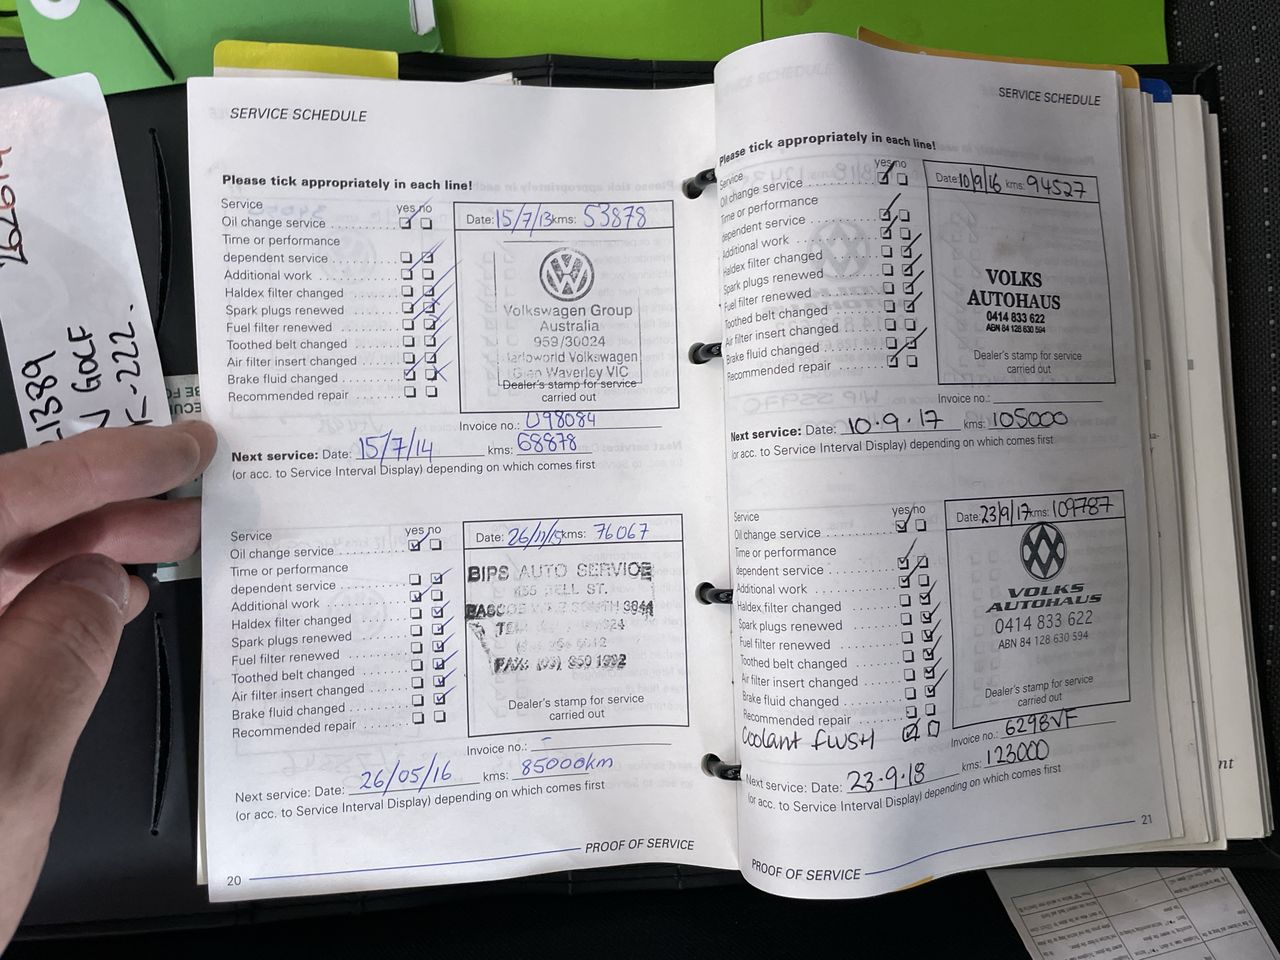 262614
1389
GOLF
-222.
SERVICE SCHEDULE
Please tick appropriately in each line!
Service
yes no
Oil change service
Time or performance
dependent service
Additional work
Haldex filter changed
Spark plugs renewed
Fuel filter renewed
Toothed belt changed
Air filter insert changed
Brake fluid changed
Recommended repair
Date: 15/7/13 kms: 53878
Volkswagen Group
Australia
959/30024
Volkswagen
Glen Waverley VIC
Dealer's stamp for service
carried out
Invoice no.: U98084
Next service: Date: 15/7/14 kms: 68878
(or acc. to Service Interval Display) depending on which comes first
Service
yes no
Oil change service
Time or performance
dependent service
Additional work
Haldex filter changed
Spark plugs renewed
Fuel filter renewed
Toothed belt changed
Air filter insert changed
Brake fluid changed
Recommended repair
Date: 26/11/15 kms: 76067
BIPS AUTO SERVICE
ST.
3844
FAX: (03) 959 1992
Dealer's stamp for service
carried out
Invoice no.: -
Next service: Date: 26/05/16 kms: 85000km
(or acc. to Service Interval Display) depending on which comes first
PROOF OF SERVICE
20
SERVICE SCHEDULE
Please tick appropriately in each line!
Service
yes no
Oil change service
Time or performance
dependent service
Additional work
Haldex filter changed
Spark plugs renewed
Fuel filter renewed
Toothed belt changed
Air filter insert changed
Brake fluid changed
Recommended repair
Date: 10/9/16 kms: 94527
VOLKS
AUTOHAUS
0414 833 622
ABN 84 128 630 594
Dealer's stamp for service
carried out
Invoice no.:
Next service: Date: 10.9.17 kms: 105000
(or acc. to Service Interval Display) depending on which comes first
Service
yes no
Oil change service
Time or performance
dependent service
Additional work
Haldex filter changed
Spark plugs renewed
Fuel filter renewed
Toothed belt changed
Air filter insert changed
Brake fluid changed
Recommended repair
Coolant flush
Date: 23/9/17 kms: 109787
VOLKS
AUTOHAUS
0414 833 622
ABN 84 128 630 594
Dealer's stamp for service
carried out
Invoice no.: 6298VF
Next service: Date: 23.9.18 kms: 123000
(or acc. to Service Interval Display) depending on which comes first
21
PROOF OF SERVICE